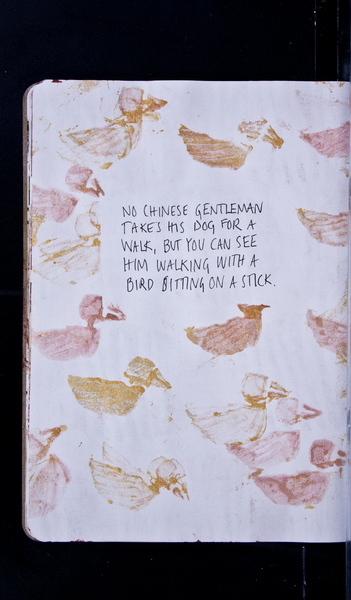 NO CHINESE GENTLEMAN
TAKES HIS DOG FOR A
WALK, BUT YOU CAN SEE
HIM WALKING WITH A
BIRD SITTING ON A STICK.